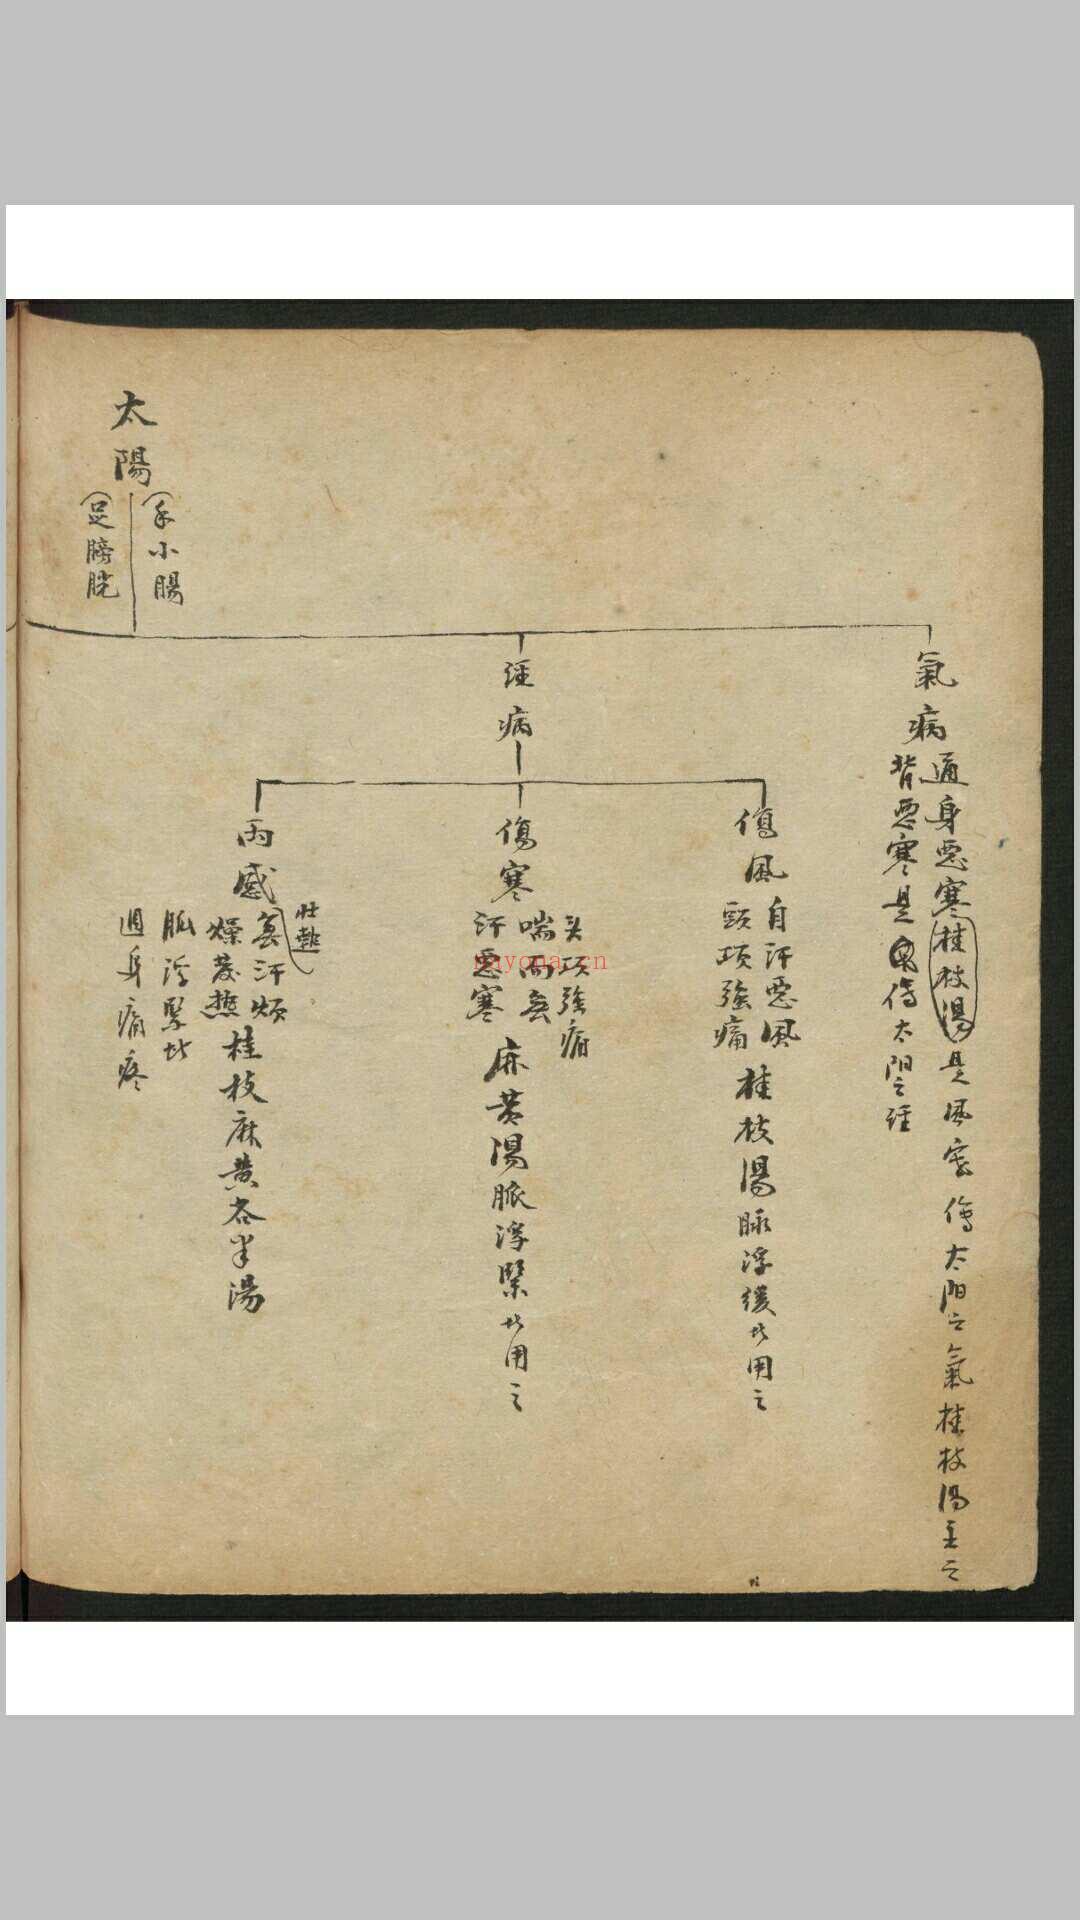 氣病
通身惡寒桂枝湯是風寒傷太阳之氣桂枝湯主之
背惡寒是傷太阳之経
太陽
手小腸
足膀胱
経病
傷風
自汗惡風
頸項強痛
桂枝湯脉浮緩此用之
傷寒
头項強痛
喘而無
汗惡寒
麻黄湯脈浮緊此用之
两感
壮熱
無汗烦
燥發热
脈浮緊此
週身痛疼
桂枝麻黄各半湯
nayona.cn